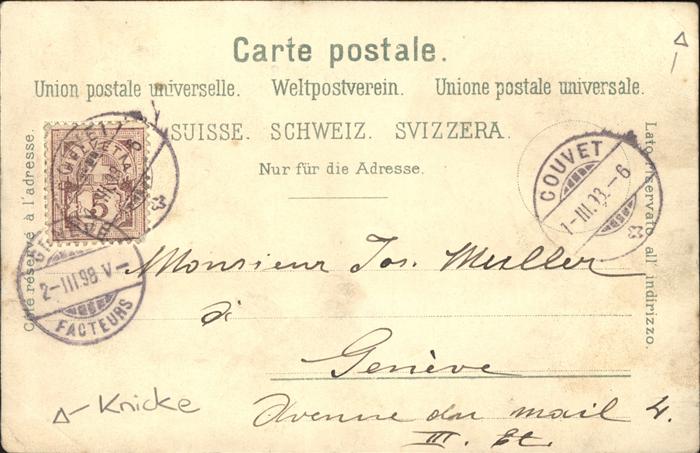 Carte postale.
Union postale universelle. Weltpostverein. Unione postale universale.
SUISSE. SCHWEIZ. SVIZZERA.
Nur für die Adresse.
Côté réservé à l'adresse.
Lato riservato all' indirizzo.
COUVET
1-III.98.-6
2-III.98.V-
FACTEURS
Monsieur Jos. Muller
à
Genève
Avenue du mail 4.
III. Et.
Knicke